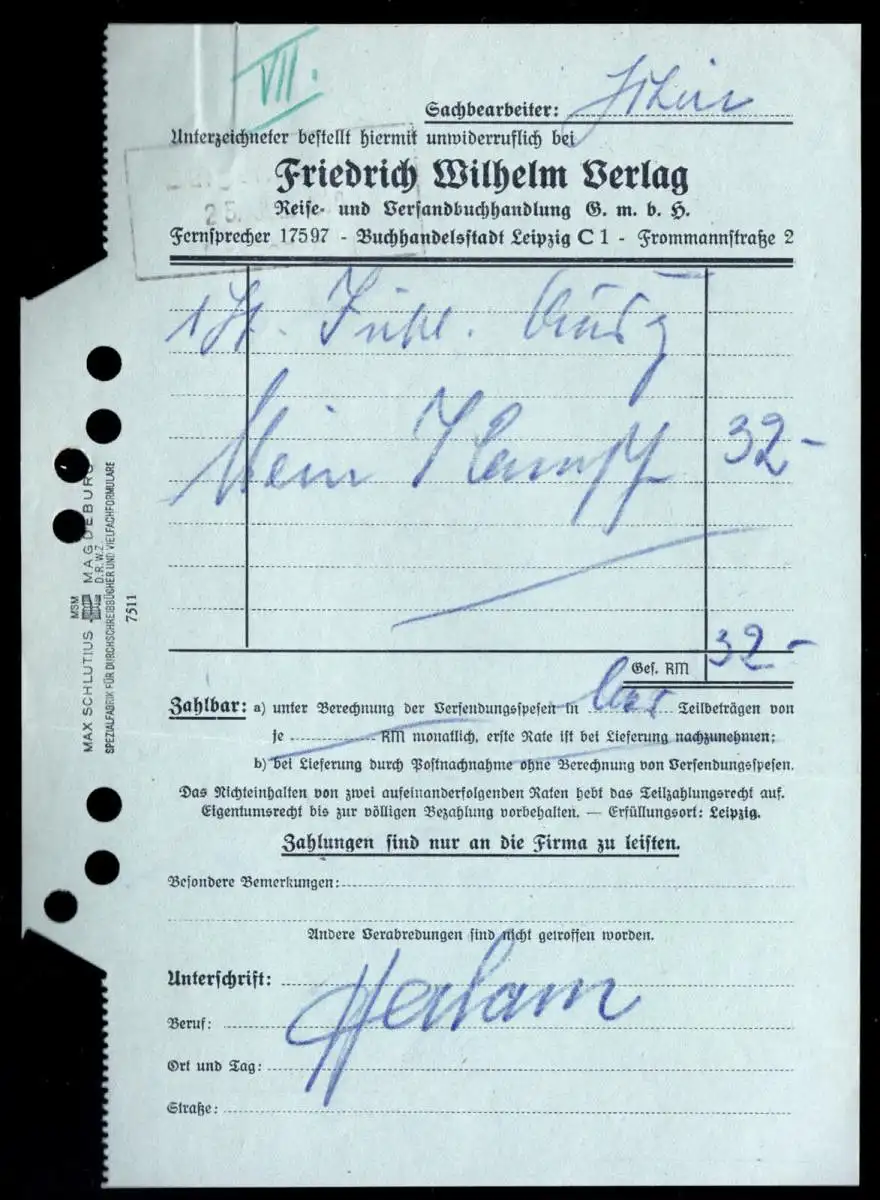 VII.
Sachbearbeiter:
Unterzeichneter bestellt hiermit unwiderruflich bei
Friedrich Wilhelm Verlag
Reise- und Versandbuchhandlung G. m. b. H.
25.
Fernsprecher 17597 - Buchhandelsstadt Leipzig C 1 - Frommannstraße 2
1
Mein Kampf 32-
Ges. RM 32-
Zahlbar: a) unter Berechnung der Versendungsspesen in bar Teilbeträgen von
je RM monatlich, erste Rate ist bei Lieferung nachzunehmen;
b) bei Lieferung durch Postnachnahme ohne Berechnung von Versendungsspesen.
Das Nichteinhalten von zwei aufeinanderfolgenden Raten hebt das Teilzahlungsrecht auf.
Eigentumsrecht bis zur völligen Bezahlung vorbehalten. — Erfüllungsort: Leipzig.
Zahlungen sind nur an die Firma zu leisten.
Besondere Bemerkungen:
Andere Verabredungen sind nicht getroffen worden.
Unterschrift:
Beruf:
Ort und Tag:
Straße:
MAX SCHLUTIUS MSM MAGDEBURG
D.R.W.Z.
SPEZIALFABRIK FÜR DURCHSCHREIBBÜCHER UND VIELFACHFORMULARE
7511